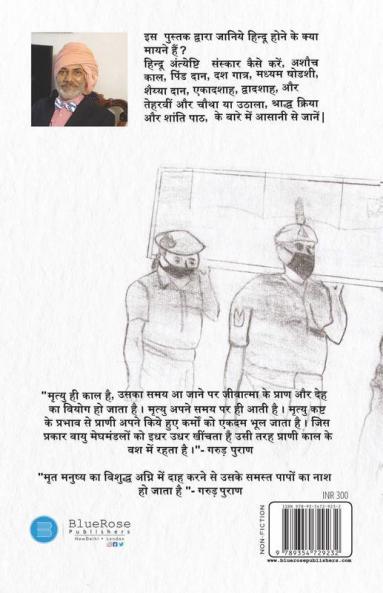 इस पुस्तक द्वारा जानिये हिन्दू होने के क्या
मायने हैं ?
हिन्दू अंत्येष्टि संस्कार कैसे करें, अशौच
काल, पिंड दान, दश गात्र, मध्यम षोडशी,
शैय्या दान, एकादशाह, द्वादशाह, और
तेहरवीं और चौथा या उठाला, श्राद्ध क्रिया
और शांति पाठ, के बारे में आसानी से जानें|
"मृत्यु ही काल है, उसका समय आ जाने पर जीवात्मा के प्राण और देह
का वियोग हो जाता है । मृत्यु अपने समय पर ही आती है । मृत्यु कष्ट
के प्रभाव से प्राणी अपने किये हुए कर्मों को एकदम भूल जाता है । जिस
प्रकार वायु मेघमंडलों को इधर उधर खींचता है उसी तरह प्राणी काल के
वश में रहता है ।"- गरुड़ पुराण
"मृत मनुष्य का विशुद्ध अग्नि में दाह करने से उसके समस्त पापों का नाश
हो जाता है "- गरुड़ पुराण
INR 300
BlueRose
Publishers
NewDelhi • London
NON-FICTION
ISBN 978-93-5472-923-2
9 789354 729232
www.bluerosepublishers.com